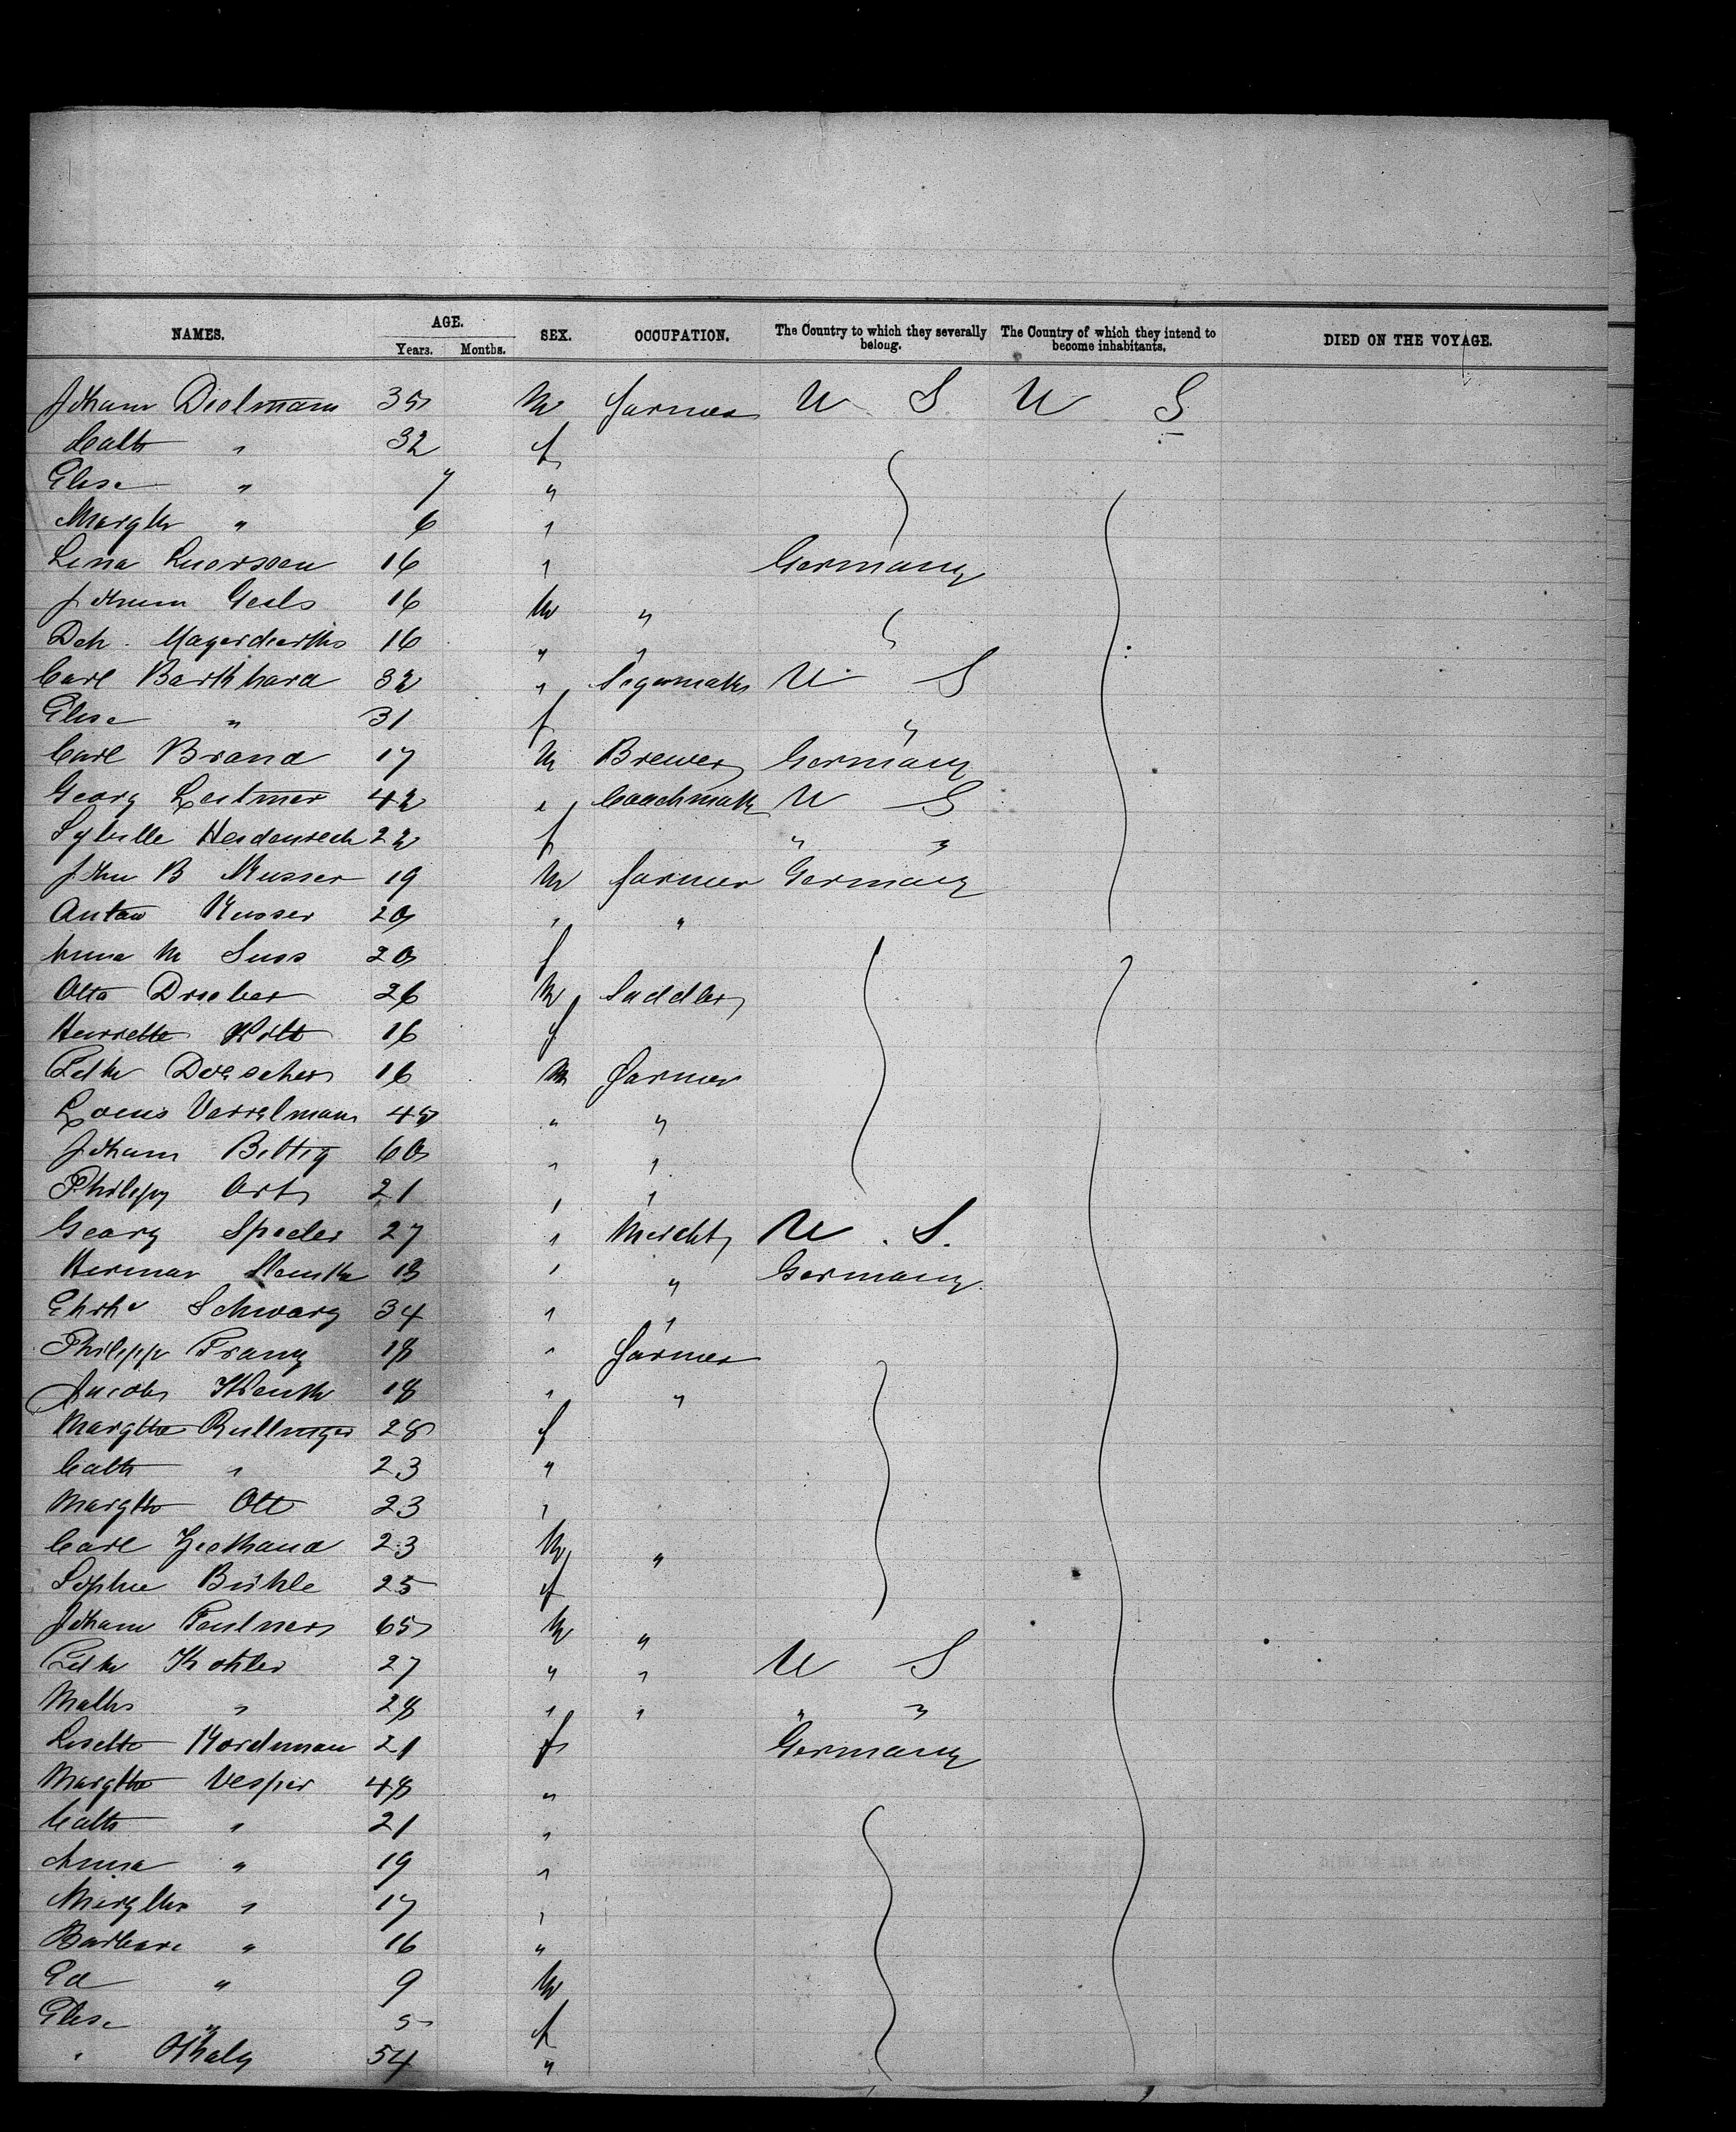 NAMES. AGE. SEX. OCCUPATION. The Country to which they severally belong. The Country of which they intend to become inhabitants. DIED ON THE VOYAGE.
Years. Months.
Johann Dielmann 35 M farmer U S U S
Cath " 32 f
Elise " 7 "
Margth " 6 "
Lina Luerssen 16 " Germany
Johann Geils 16 M "
Dch. Mayerdierks 16 " "
Carl Barkhard 32 " Segarmakr U S
Elise " 31 f "
Carl Brand 17 M Brewer Germany
Georg Leitmer 42 " Coachmakr U S
Sybille Heidenreich 22 f " "
John B Musser 19 M farmer Germany
Anton Musser 20 " "
Anna M Suss 20 f
Otto Drieber 26 M Saddler
Henriette 16 f
Doescher 16 M farmer
Louis Vasselmann 45 " "
Johann Bittig 60 " "
Philipp Ort 21 " "
Georg Speeler 27 " Mercht U. S.
Herman 18 " " Germany
Schwarz 34 " "
Philipp Franz 18 " farmer
Jacob Wenk 18 " "
Margthe Bullinger 28 f
Cath " 23 "
Margth Ott 23 "
Carl 23 M "
Sophie Bühle 25 f
Johann 65 M "
Kohler 27 " " U S
Maths " 28 " " " "
Lisette Nordmann 21 f Germany
Margthe Vesper 48 "
Cath " 21 "
Anna " 19 "
Margth " 17 "
Barbara " 16 "
Ed " 9 M
Elise " 5 f
" 54 "